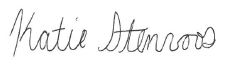 Katie Stenroos